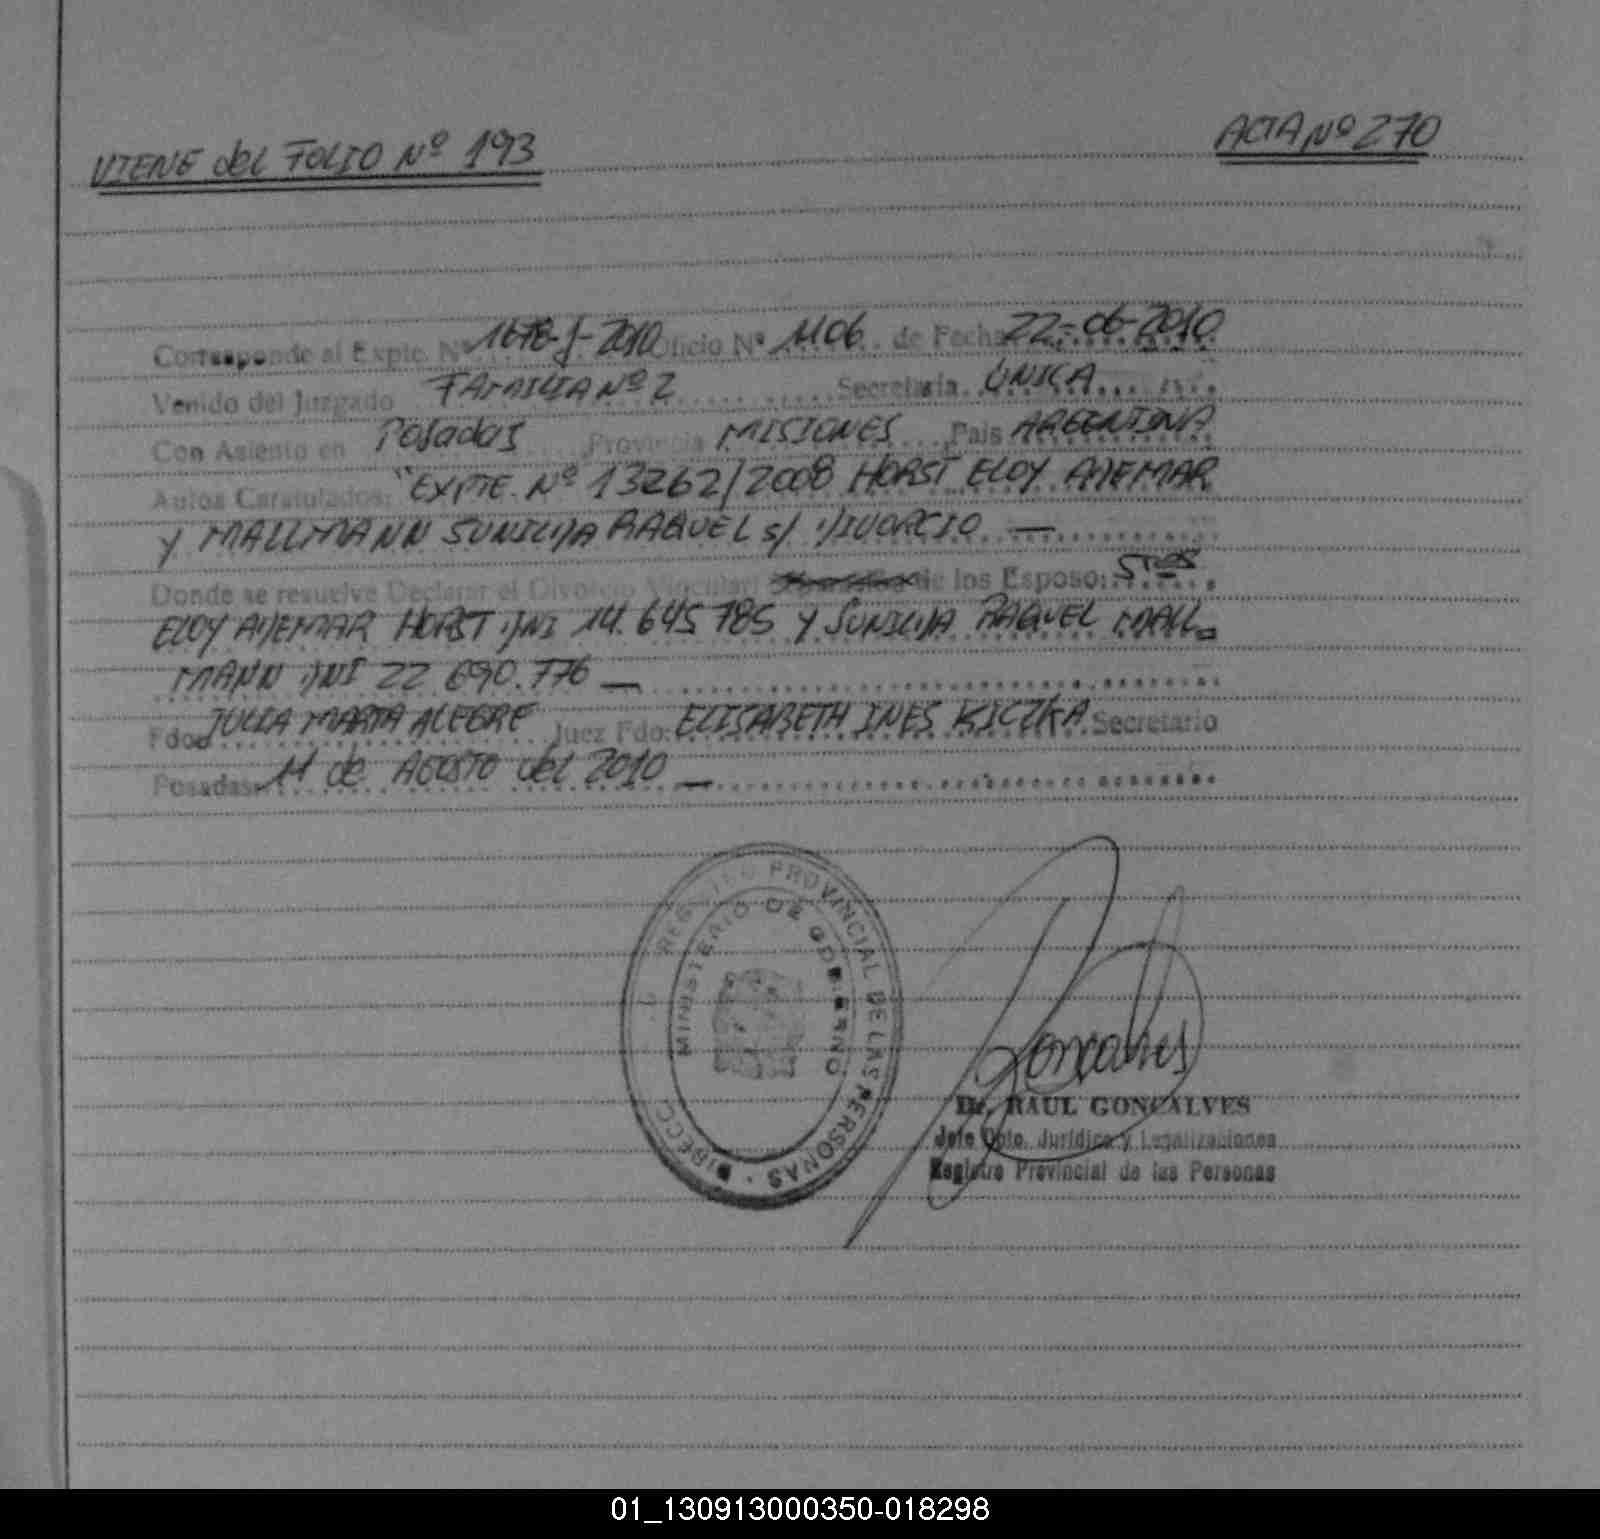 VIENE del FOLIO Nº 193
ACTA Nº 270
Corresponde al Expte. Nº 1678-J-2010 Oficio Nº 1106 de Fecha 22-06-2010
Venido del Juzgado FAMILIA Nº 2 Secretaria UNICA
Con Asiento en Posadas Provincia MISIONES País ARGENTINA
Autos Caratulados: "EXPTE. Nº 13262/2008 HORST ELOY ADEMAR
Y MALLMANN SUNILDA RAQUEL s/ DIVORCIO —
Donde se resuelve Declarar el Divorcio Vincular de los Esposo: Sres
ELOY ADEMAR HORST DNI 14.645785 Y SUNILDA RAQUEL MALL-
MANN DNI 22 690.776 —
Fdo: JULIA MARTA ALEGRE Juez Fdo: ELISABETH INES KICZKA Secretario
Posadas: 11 de AGOSTO del 2010 —
REGISTRO PROVINCIAL DE LAS PERSONAS
MINISTERIO DE GOBIERNO
Goncalves
Dr. RAUL GONCALVES
Jefe Dpto. Jurídico y Legalizaciones
Registro Provincial de las Personas
01_130913000350-018298